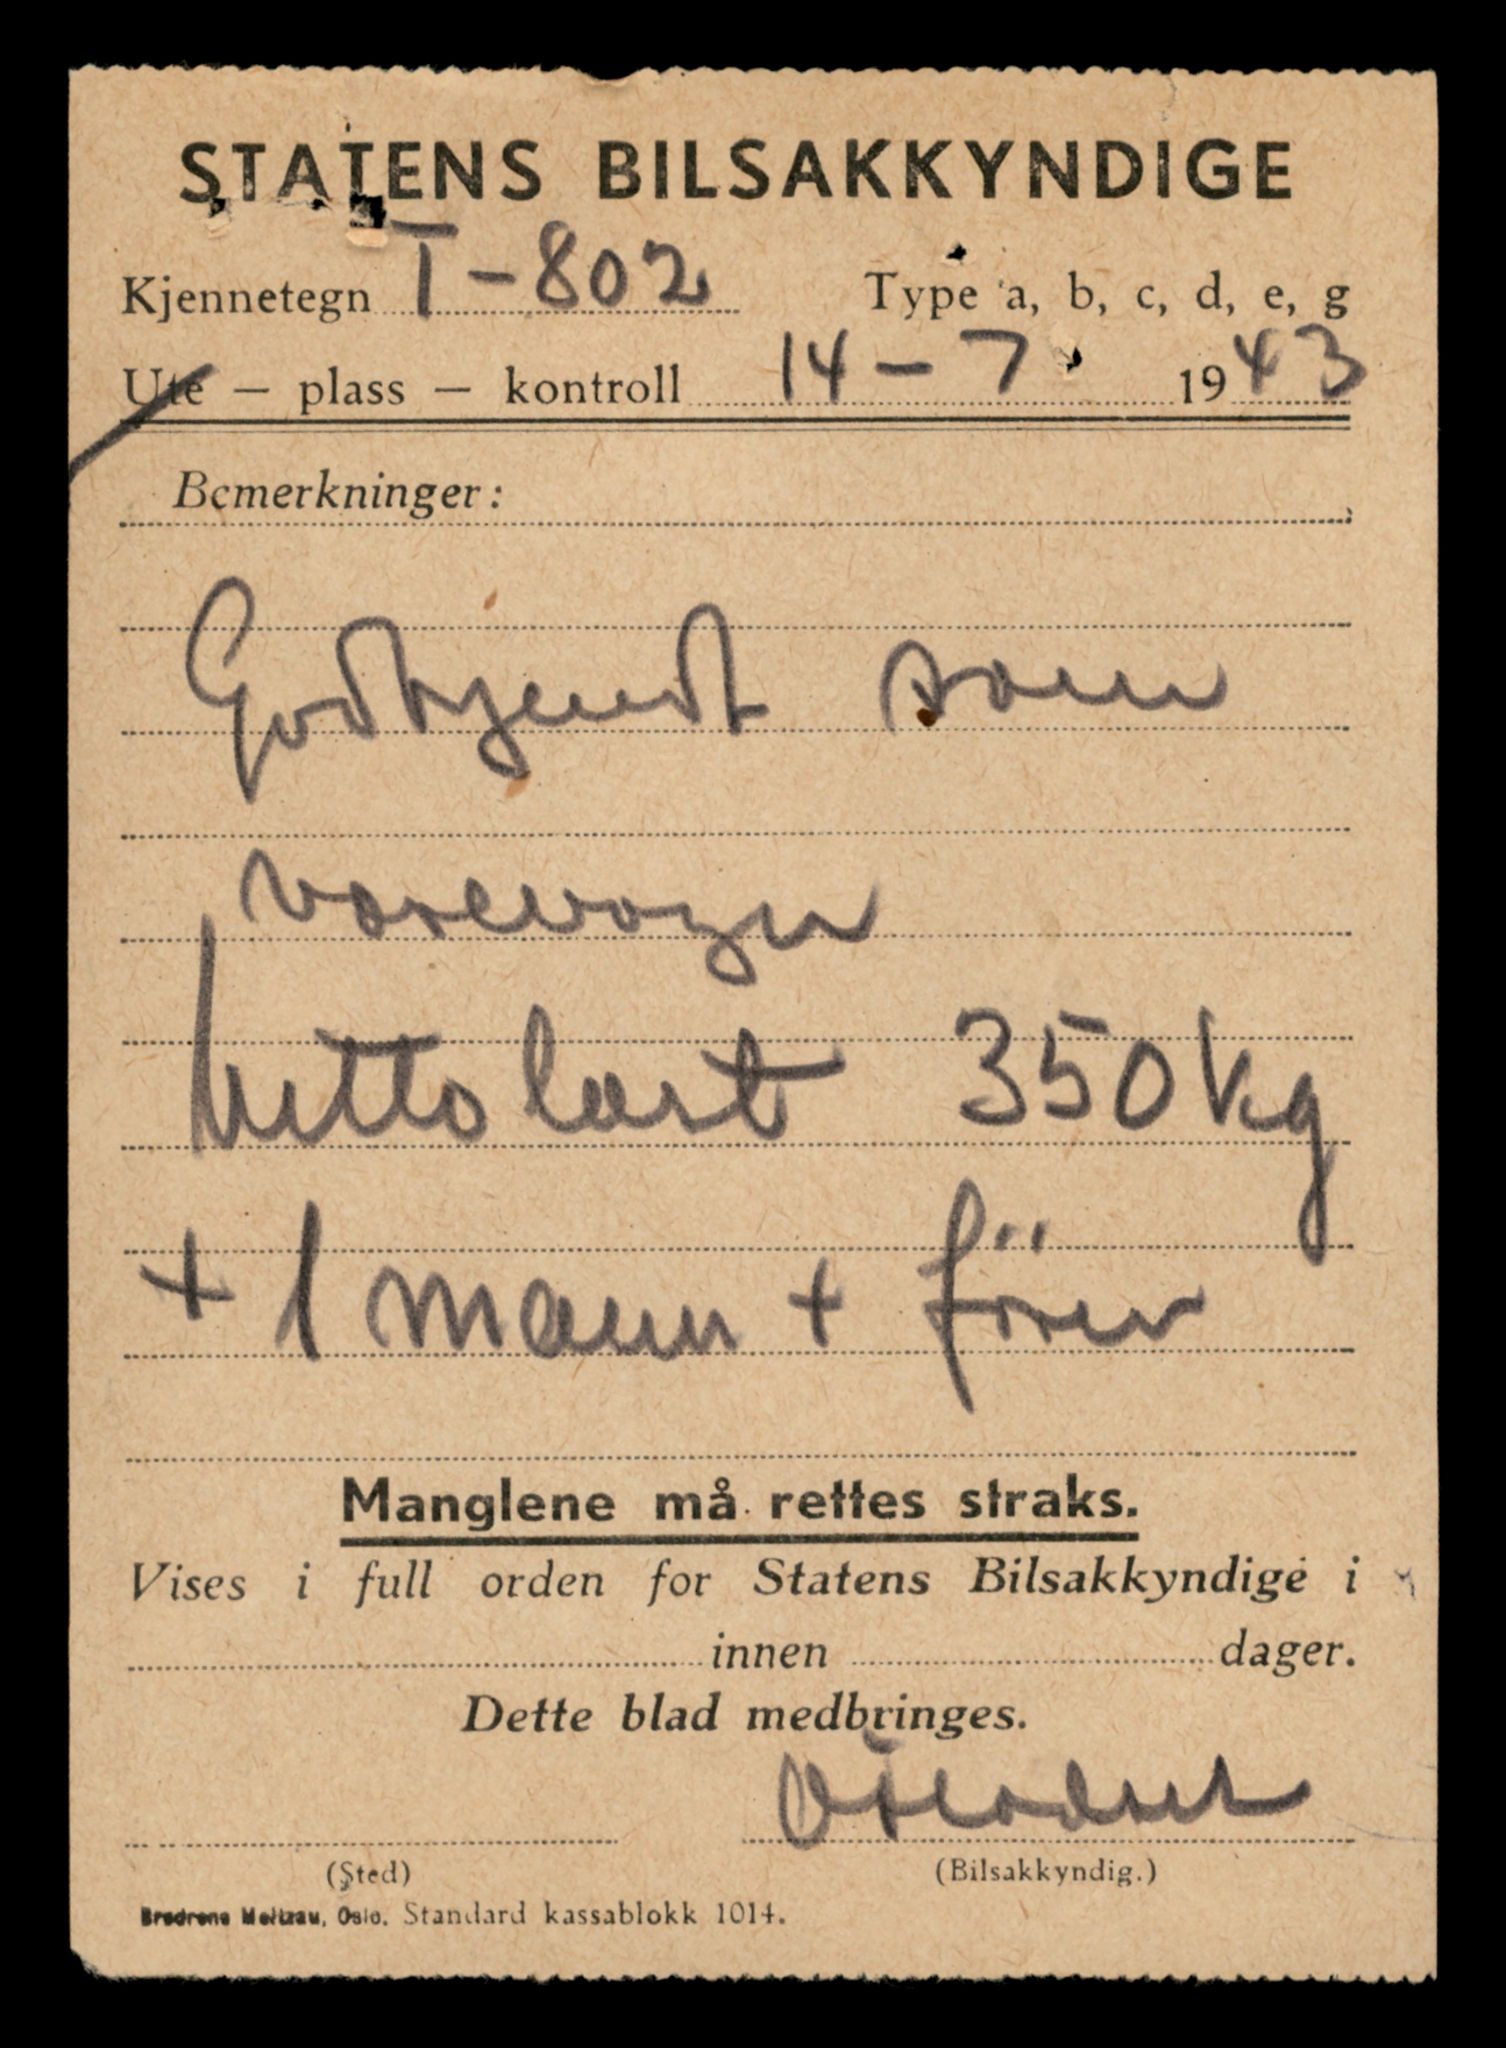 STATENS BILSAKKYNDIGE
Kjennetegn T-802 Type a, b, c, d, e, g
Ute — plass — kontroll 14-7 1943
Bemerkninger:
Godkjendt som
varevogn
Nettolast 350 kg
+ 1 mann + förer
Manglene må rettes straks.
Vises i full orden for Statens Bilsakkyndige i
innen dager.
Dette blad medbringes.
(Sted) (Bilsakkyndig.)
Brødrene Meltzau, Oslo. Standard kassablokk 1014.